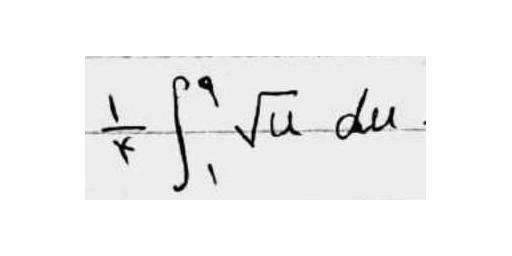 \frac{1}{k} \int_{1}^{9} \sqrt{u} \, du.